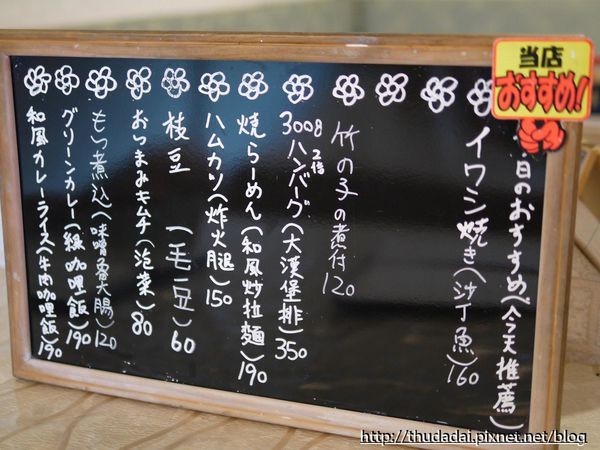 当店
おすすめ!
本日のおすすめ(今天推薦)
イワシ焼き(沙丁魚)160
竹の子の煮付120
300g 2倍 ハンバーグ(大漢堡排)350
焼らーめん(和風炒拉麵)190
ハムカツ(炸火腿)150
枝豆 (毛豆)60
おつまみキムチ(泡菜)80
もつ煮込(味噌魯大腸)120
グリーンカレー(綠咖哩飯)190
和風カレーライス(牛肉咖哩飯)190
http://thudadai.pixnet.net/blog